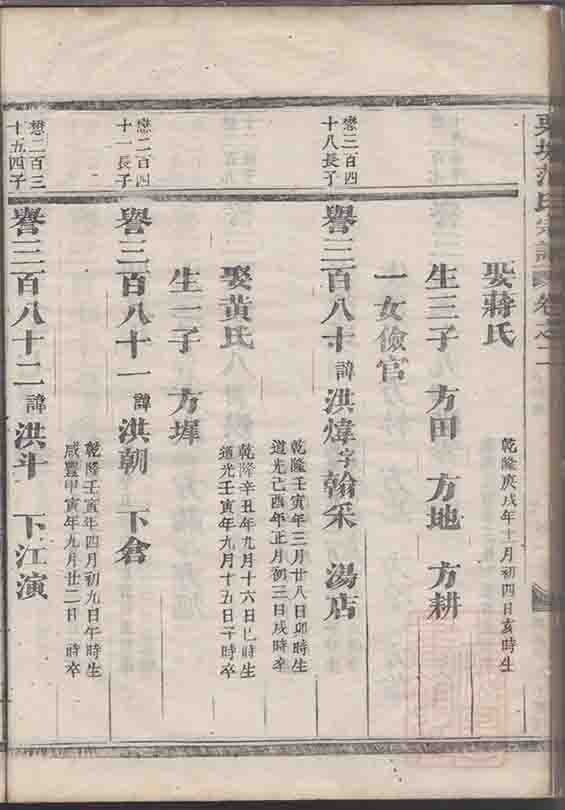 氏宗譜 卷之二
娶蔣氏
乾隆庚戌年十一月初四日亥時生
生三子 方田 方地 方耕
一女儉官
懋二百四
十八長子
譽三百八十 諱洪煒字翰采 湯店
乾隆壬寅年三月廿八日卯時生
道光己酉年正月初三日戌時卒
娶黃氏
乾隆辛丑年九月十六日巳時生
道光壬寅年九月十五日子時卒
生一子 方墀
懋二百四
十一長子
譽三百八十一 諱洪朝 下倉
乾隆壬寅年四月初九日午時生
咸豐甲寅年九月廿二日 時卒
懋二百三
十五四子
譽三百八十二 諱洪斗 下江演